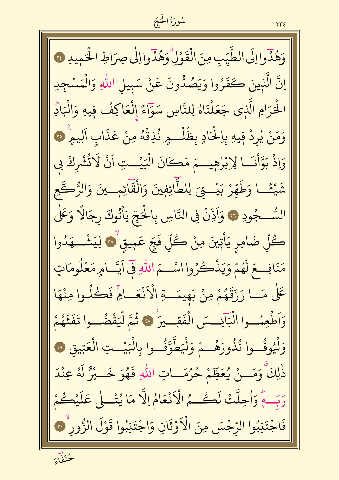 سُورَةُ الْحَجِّ
٣٣٤
وَهُدُٓوا اِلَى الطَّيِّبِ مِنَ الْقَوْلِ وَهُدُٓوا اِلٰى صِرَاطِ الْحَم۪يدِ ٢٤
اِنَّ الَّذ۪ينَ كَفَرُوا وَيَصُدُّونَ عَنْ سَب۪يلِ اللّٰهِ وَالْمَسْجِدِ
الْحَرَامِ الَّذ۪ي جَعَلْنَاهُ لِلنَّاسِ سَوَٓاءًۨ الْعَاكِفُ ف۪يهِ وَالْبَادِۜ
وَمَنْ يُرِدْ ف۪يهِ بِاِلْحَادٍ بِظُلْمٍ نُذِقْهُ مِنْ عَذَابٍ اَل۪يمٍ ٢٥
وَاِذْ بَوَّأْنَا لِاِبْرٰه۪يمَ مَكَانَ الْبَيْتِ اَنْ لَا تُشْرِكْ ب۪ي
شَيْـًٔا وَطَهِّرْ بَيْتِيَ لِلطَّٓائِف۪ينَ وَالْقَٓائِم۪ينَ وَالرُّكَّعِ
السُّجُودِ ٢٦ وَاَذِّنْ فِي النَّاسِ بِالْحَجِّ يَأْتُوكَ رِجَالًا وَعَلٰى
كُلِّ ضَامِرٍ يَأْت۪ينَ مِنْ كُلِّ فَجٍّ عَم۪يقٍۙ ٢٧ لِيَشْهَدُوا
مَنَافِعَ لَهُمْ وَيَذْكُرُوا اسْمَ اللّٰهِ ف۪ٓي اَيَّامٍ مَعْلُومَاتٍ
عَلٰى مَا رَزَقَهُمْ مِنْ بَه۪يمَةِ الْاَنْعَامِۚ فَكُلُوا مِنْهَا
وَاَطْعِمُوا الْبَٓائِسَ الْفَق۪يرَۘ ٢٨ ثُمَّ لْيَقْضُوا تَفَثَهُمْ
وَلْيُوفُوا نُذُورَهُمْ وَلْيَطَّوَّفُوا بِالْبَيْتِ الْعَت۪يقِ ٢٩
ذٰلِكَۗ وَمَنْ يُعَظِّمْ حُرُمَاتِ اللّٰهِ فَهُوَ خَيْرٌ لَهُ عِنْدَ
رَبِّه۪ۜ وَاُحِلَّتْ لَكُمُ الْاَنْعَامُ اِلَّا مَا يُتْلٰى عَلَيْكُمْ
فَاجْتَنِبُوا الرِّجْسَ مِنَ الْاَوْثَانِ وَاجْتَنِبُوا قَوْلَ الزُّورِۙ ٣٠
حُنَفَٓاءَ